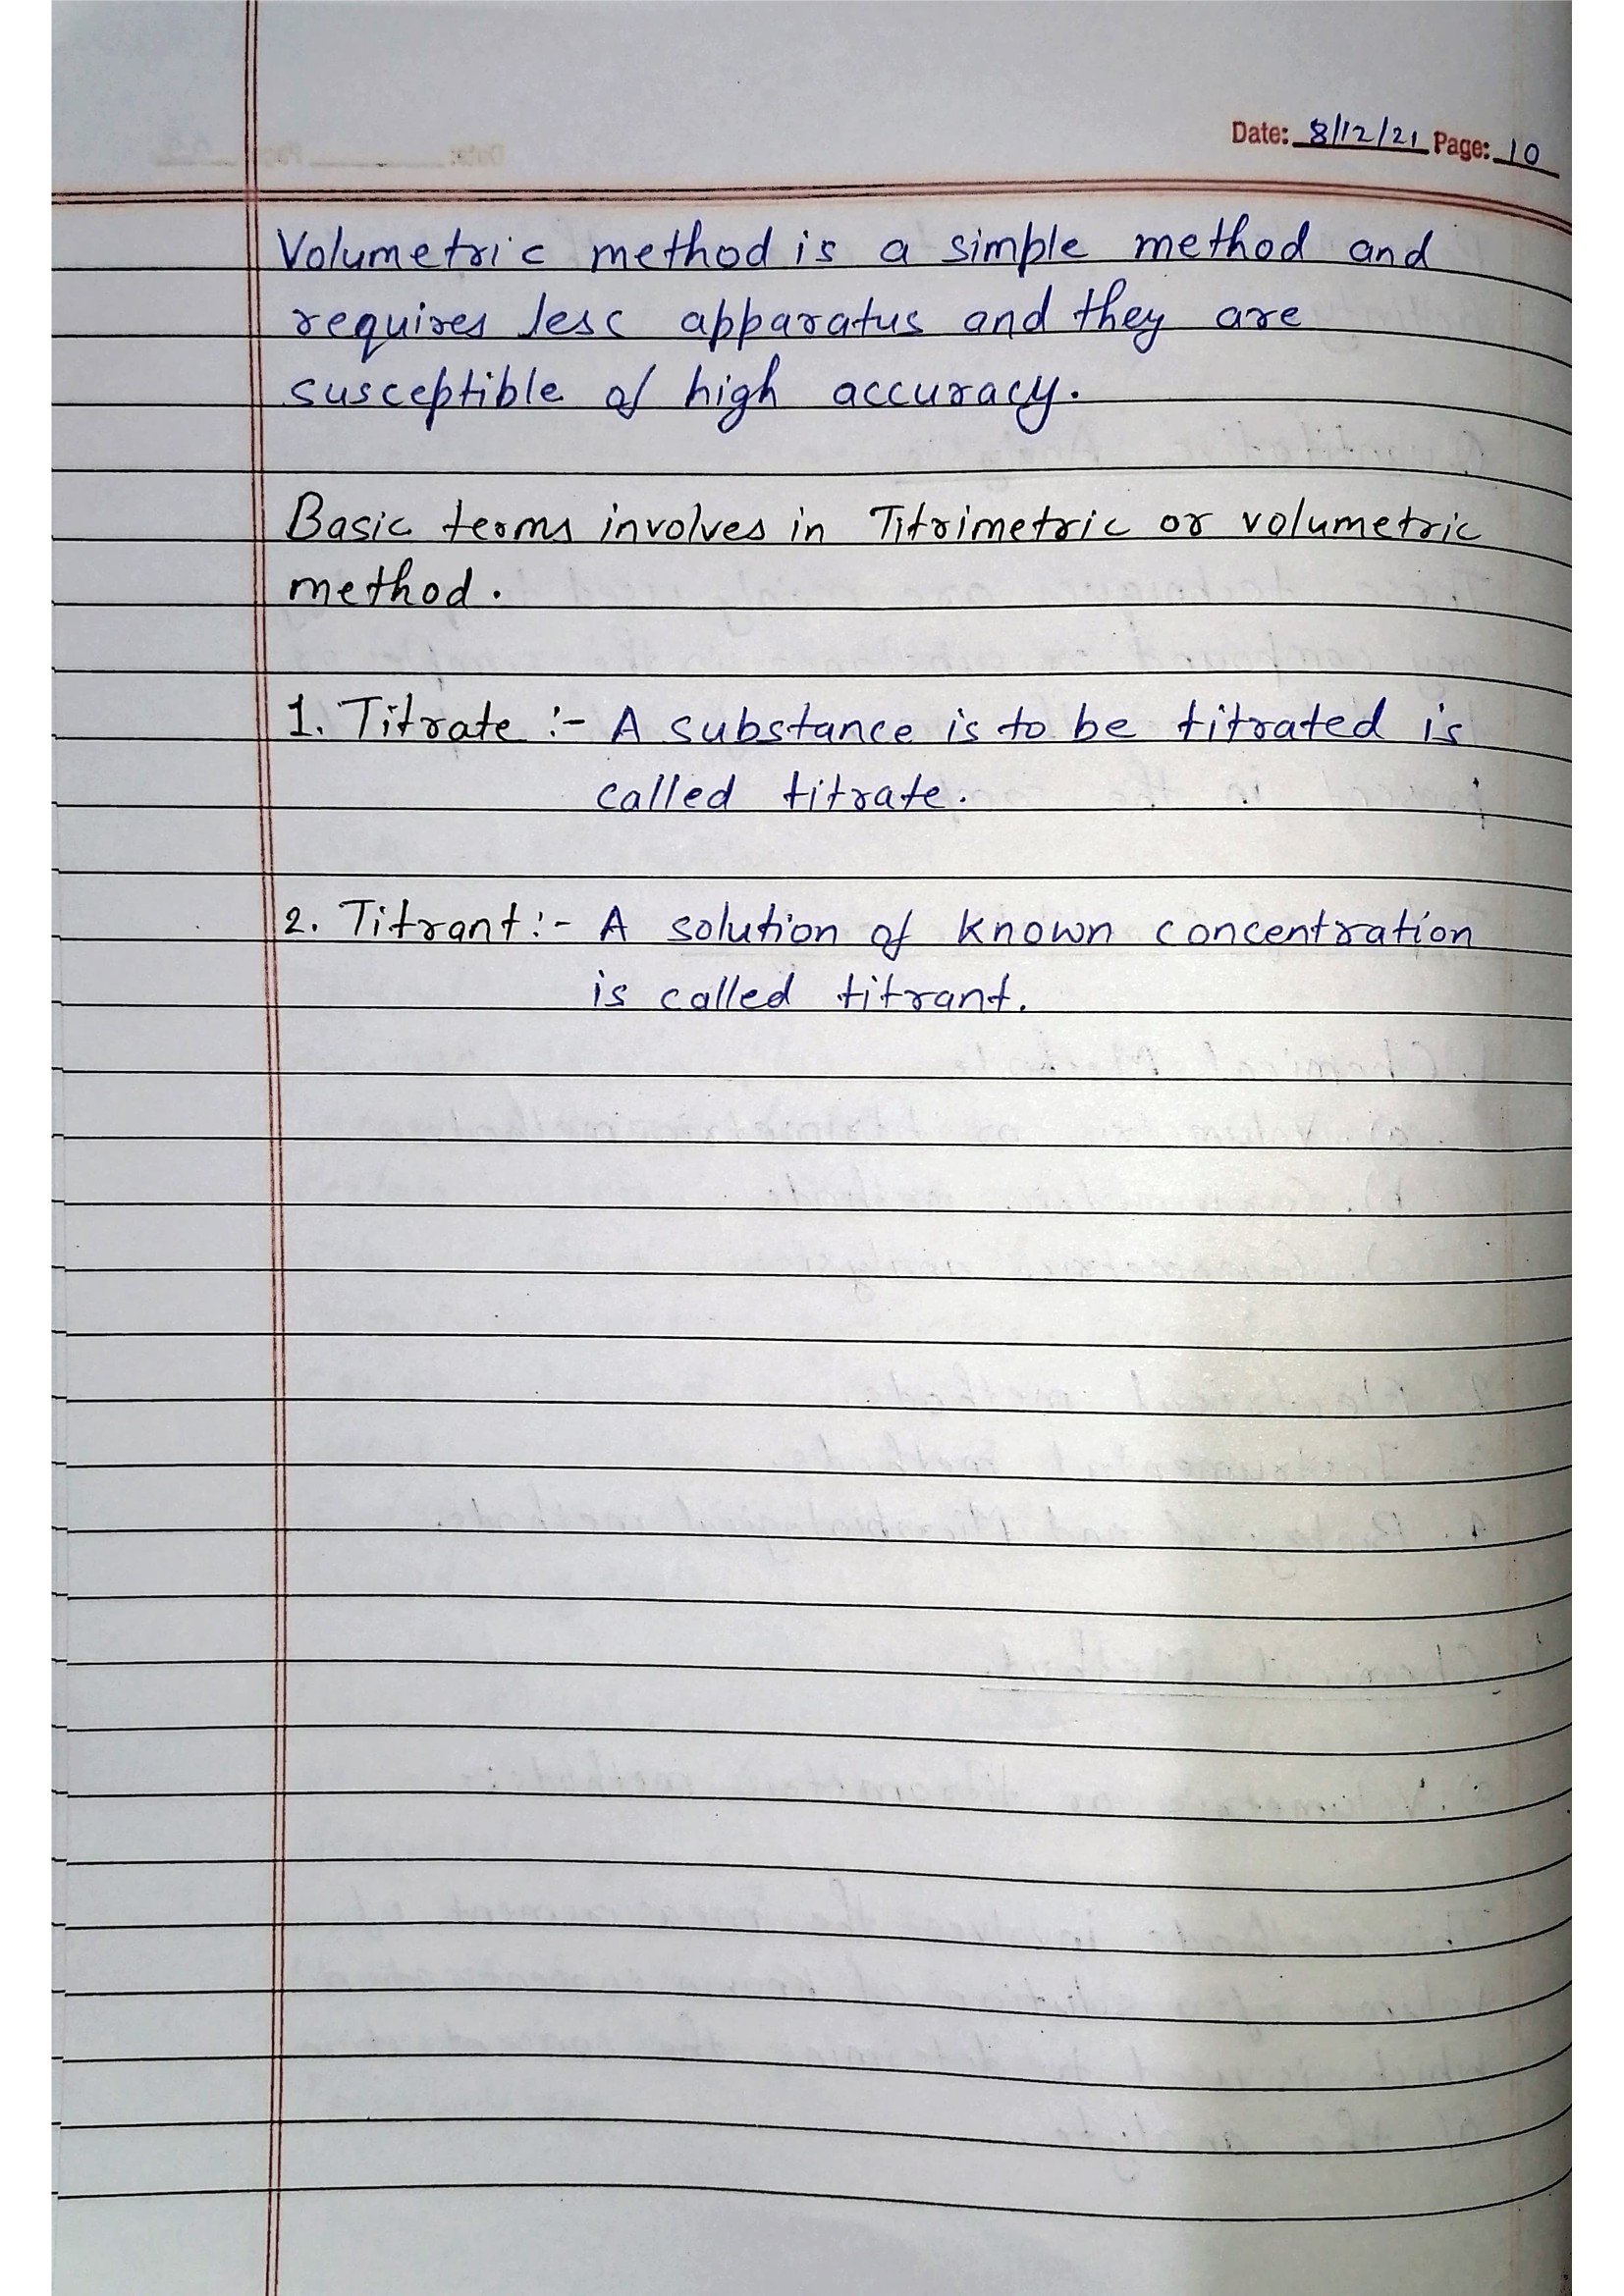 Date: 8/12/21 Page: 10
Volumetric method is a simple method and
requires less apparatus and they are
susceptible of high accuracy.
Basic terms involves in Titrimetric or volumetric
method.
1. Titrate :- A substance is to be titrated is
called titrate.
2. Titrant :- A solution of known concentration
is called titrant.